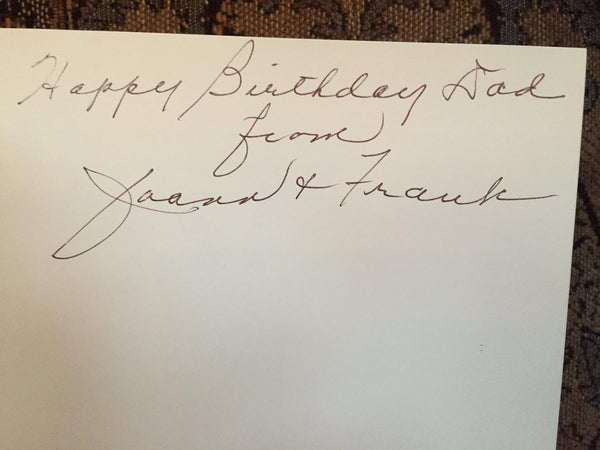 Happy Birthday Dad
from
Joann & Frank